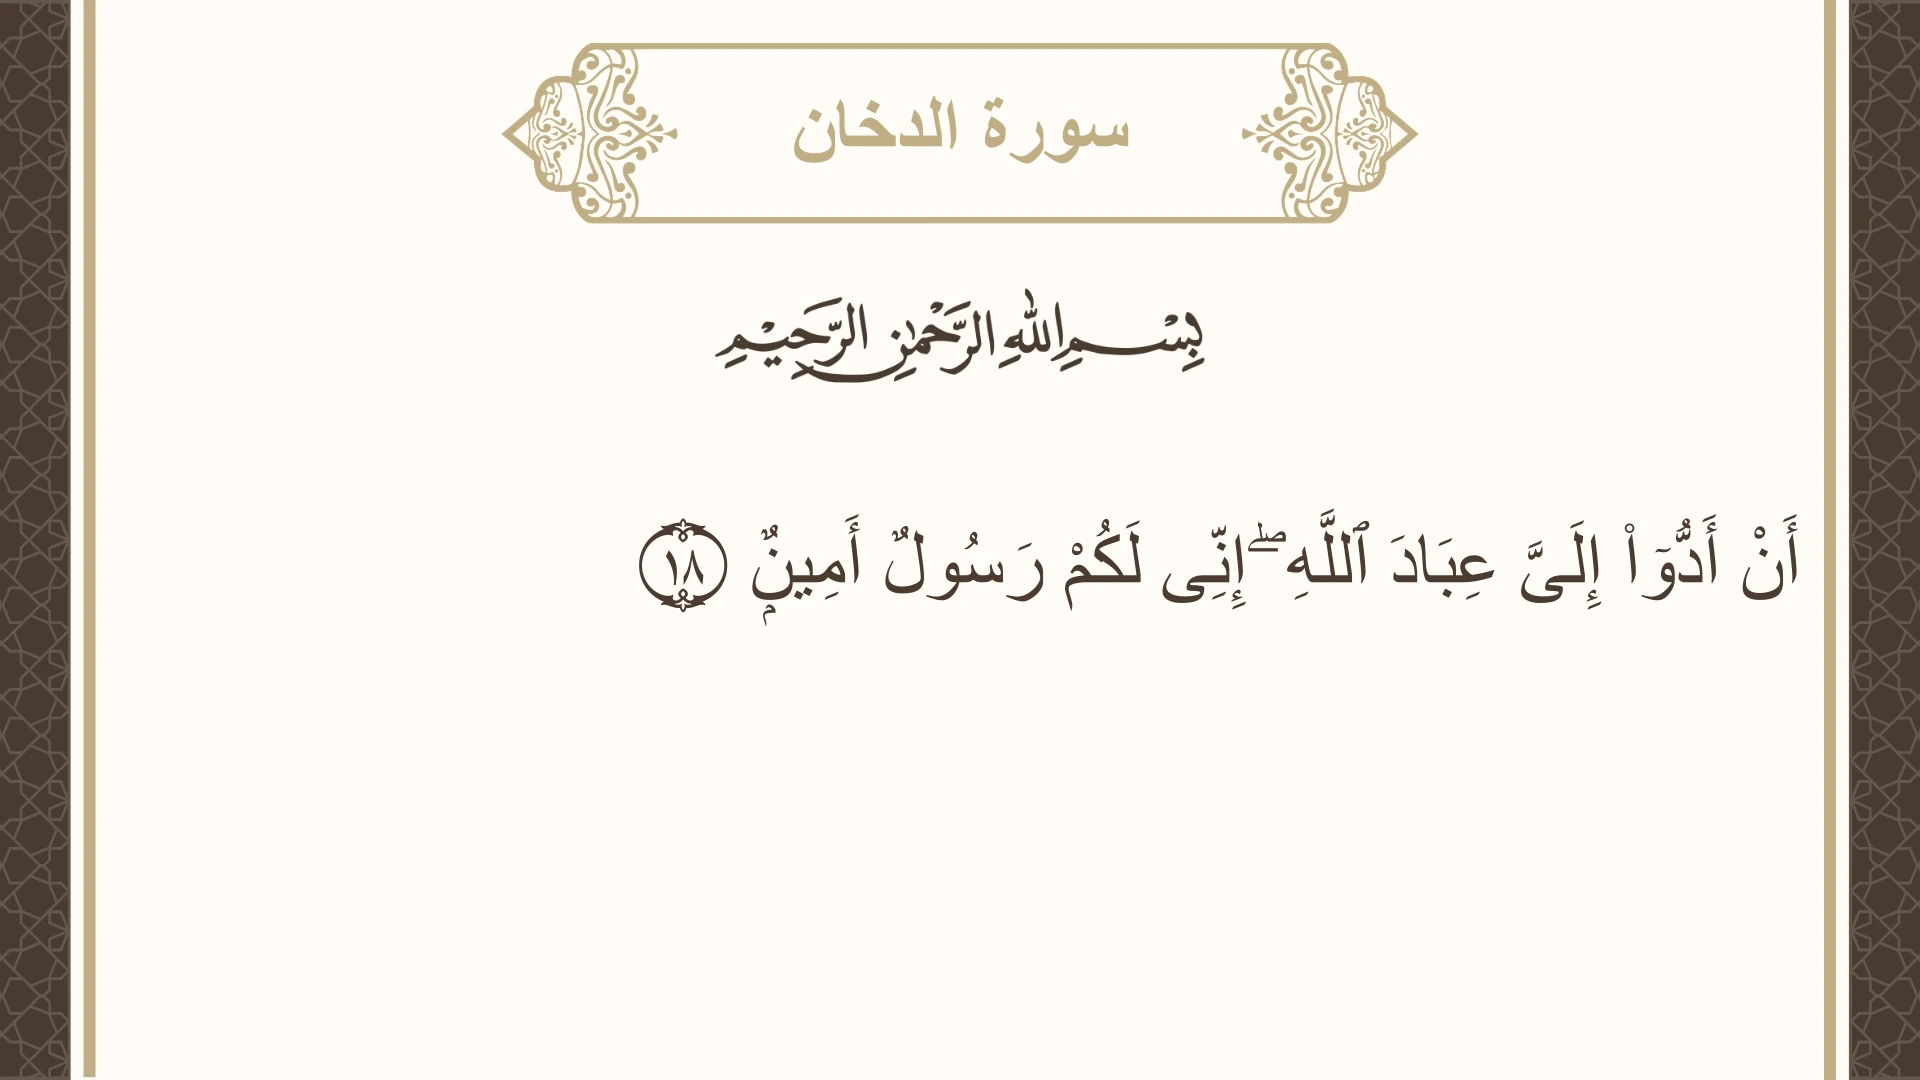 سورة الدخان
بِسْمِ اللهِ الرَّحْمٰنِ الرَّحِيْمِ
أَنْ أَدُّوٓا۟ إِلَىَّ عِبَادَ ٱللَّهِ ۖ إِنِّى لَكُمْ رَسُولٌ أَمِينٌۭ ١٨